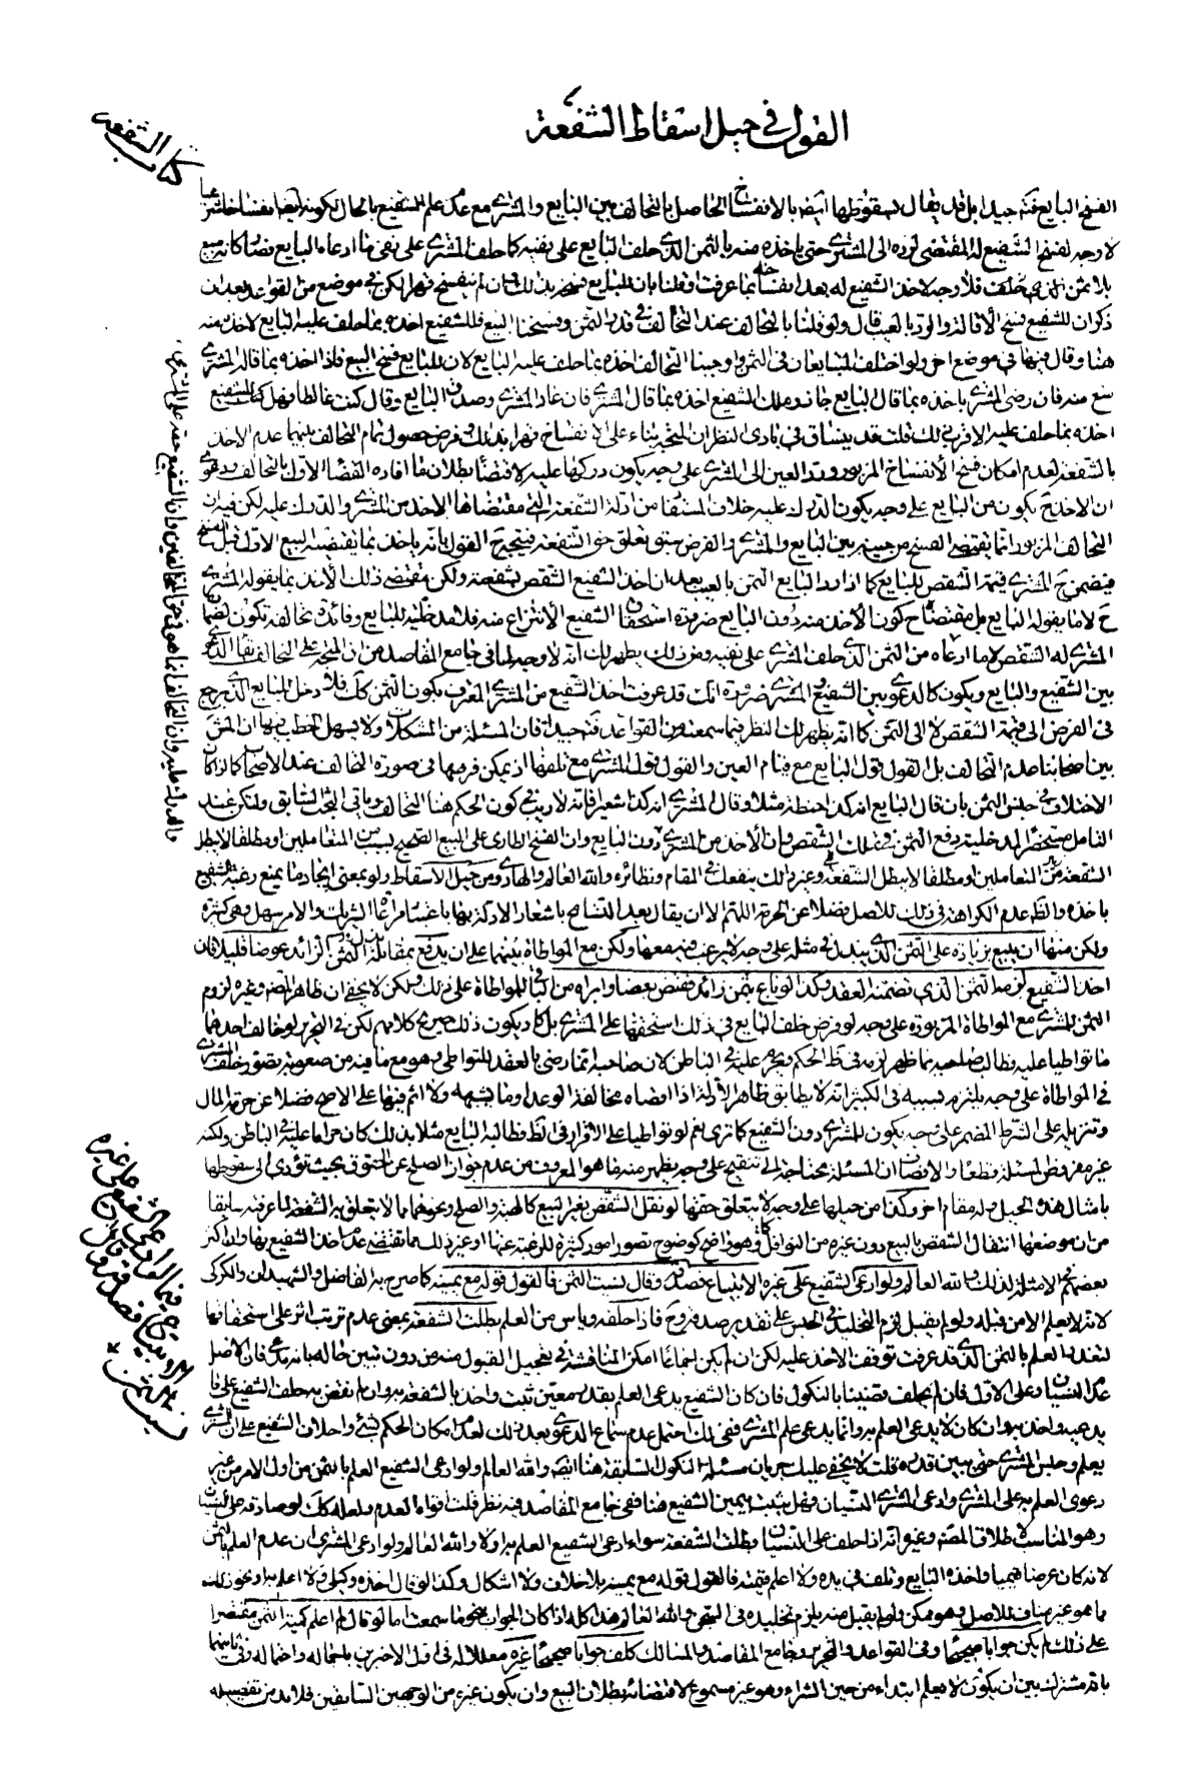 القول في حيل اسقاط الشفعة
كتاب الشفعة
الفسخ البايع فتأمل جيدا بل قد يقال بسقوطها ايضا بالانفساخ الحاصل بالتحالف بين البايع والمشتري مع عدم علم الشفيع بالحال لكونه
لا وجه لفسخ الشفيع له المقتضي لرده الى المشتري حتى ياخذه منه بالثمن الذي حلف البايع على نفيه كما حلف المشتري على نفي ما ادعاه البايع
بلا ثمن فلا وجه لاخذ الشفيع له بعد انفساخه بما عرفت وقلنا بان للبايع فسخه بذلك وان لم ينفسخ قهرا لكن في موضع من القواعد بعد ان
ذكر ان للشفيع فسخ الاقالة والرد بالعيب قال ولو قلنا بالتحالف عند التخالف في قدر الثمن وفسخنا البيع فللشفيع اخذه بما حلف عليه البايع لاخذه منه
هنا وقال فيها في موضع اخر ولو اختلف المتبايعان في الثمن واوجبنا التحالف اخذه بما حلف عليه البايع لان للبايع فسخ البيع فاذا اخذه بما قال المشتري
منع منه فان رضي المشتري باخذه بما قال البايع جاز وملك الشفيع اخذه بما قال المشتري فان عاد المشتري وصدق البايع وقال كنت غالطا فهل للشفيع
اخذه بما حلف عليه الاقرب ذلك قلت قد ينساق في بادي النظر ان المتجه بناء على الانفساخ قهرا بذلك وفرض حصول تمام التحالف بينهما عدم الاخذ
بالشفعة لعدم امكان فسخ الانفساخ المزبور ورد العين الى المشتري على وجه يكون دركها عليه لاقتضاء بطلان ما افاده القضاء الاول بالتحالف ودعوى
ان الاخذ ح يكون من البايع على وجه يكون الدرك عليه خلاف المستفاد من ادلة الشفعة التي مقتضاها الاخذ من المشتري والدرك عليه لكن فيه ان
التحالف المزبور انما يقتضي الفسخ من حينه بين البايع والمشتري والفرض سبق تعلق حق الشفعة فيتجه ح القول بانه ياخذ بما يقتضيه البيع الاول قبل الفسخ
فيضمن ح المشتري قيمة الشقص للبايع كما اذا رد البايع الثمن بالعيب بعد ان اخذ الشفيع الشقص بشفعته ولكن مقتضى ذلك الاخذ بما يقوله المشتري
ح لا ما يقوله البايع بل مقتضاه ح كون الاخذ منه دون البايع ضرورة استحقاق الشفيع الانتزاع منه فلا مدخلية للبايع وفائدة تحالفه تكون لضمان
المشتري له الشقص لا ما ادعاه من الثمن الذي حلف المشتري على نفيه ومن ذلك يظهر لك انه لا وجه لما في جامع المقاصد من ان المتجه على التحالف بقاء الدعوى
بين الشفيع والبايع ويكون كالدعوى بين الشفيع والمشتري ضرورة انك قد عرفت اخذ الشفيع من المشتري المعترف بكون الثمن كذلك فلا دخل للبايع الذي يرجع
في الفرض الى قيمة الشقص لا الى الثمن كما انه يظهر لك النظر فيما سمعته من القواعد فتأمل جيدا فان المسئلة من المشكلات ولا يسهل الخطب فيها ان المشهور
بين اصحابنا عدم التحالف بل القول قول البايع مع قيام العين والقول قول المشتري مع تلفها اذ يمكن فرضها في صورة التحالف عند الاصحاب كما اذا كان
الاختلاف في جنس الثمن بان قال البايع انه كذا حنطة مثلا وقال المشتري انه كذا شعيرا فانه لا ريب في كون الحكم هنا التحالف وياتي البحث السابق ولكن عند
التامل مستحضرا لمدخلية دفع الثمن في تملك الشقص وان الاخذ من المشتري دون البايع وان الفسخ الطاري على البيع الصحيح بسبب من المتعاملين او مطلقا لا يبطل
الشفعة من المتعاملين او مطلقا لا يبطل الشفعة وغير ذلك ينفعك في المقام ونظائره والله العالم والهادي ومن حيل الاسقاط ولو بمعنى ايجاد ما يمنع رغبة الشفيع
باخذه والظاهر عدم الكراهة في ذلك للاصل فضلا عن الحرمة اللهم الا ان يقال بعد التسامح باشعار الادلة بها باعتبار مراعاة الشركة والامر سهل وهي كثيرة
ولكن منها ان يبيع بزيادة على الثمن الذي يبذل في مثله على وجه لا يرغب فيه معها ولكن مع المواطاة بينهما على ان يدفع بمقابلة الثمن الزائد عوضا قليلا فان
اخذ الشفيع لزمه الثمن الذي تضمنه العقد وكذا لو باع بثمن زائد فقبض بعضا وابراه من الباقي للمواطاة على ذلك ولكن لا يخفى ان ظاهر المصنف وغيره لزوم
الثمن للمشتري مع المواطاة المزبورة على وجه لو فرض خلف البايع في ذلك استحقها على المشتري بل كاد يكون ذلك صريح كلامهم لكن في التحرير لو خالف احدهما
ما تواطيا عليه فطالب صاحبه بما ظهر لزمه في ظاهر الحكم ويحرم عليه في الباطن لان صاحبه انما رضي بالعقد للتواطي وهو مع ما فيه من صعوبة تصور خلف المشتري
في المواطاة على وجه يلزم بسببه في الكثير انه لا يطابق ظاهر الادلة اذا اقصاه مخالفة الوعد او ما يشبهه ولا اثم فيها على الاصح فضلا عن حرمة المال
وتنزيله على الشرط المضمر على وجه يكون للمشتري دون الشفيع كما ترى نعم لو تواطيا على الاقرار في الظاهر فطالبه البايع مثلا بذلك كان حراما عليه في الباطن ولكنه
غير مفروض المسئلة قطعا والانصاف ان المسئلة محتاجة الى تنقيح على وجه يظهر منه ما هو المعروف من عدم جواز الصلح عن الحقوق بحيث تؤدي الى سقوطها
بامثال هذه الحيل وله مقام اخر وكذا من حيلها على وجه لا يتعلق حقها لو نقل الشقص بغير البيع كالهبة والصلح ونحوهما مما لا يتعلق به الشفعة لما عرفته سابقا
من ان موضوعها انتقال الشقص بالبيع دون غيره من النواقل وهو واضح كوضوح تصور امور كثيرة للرغبة عنها او غير ذلك مما تقتضي عدم اخذ الشفيع بها وان اكثر
بعضهم الامثلة لذلك والله العالم ولو ادعى الشفيع على غيره الابتياع فصدقه وقال نسيت الثمن فالقول قوله مع يمينه كما صرح به الفاضل والشهيدان والكركي
لانه لا يعلم الا من قبله ولو لم يقبل لزم التخليد في الحبس على تقدير صدقه وح فاذا حلفه وياس من العلم بطلت الشفعة بمعنى عدم ترتب اثر على استحقاقها
لتعذر العلم بالثمن الذي قد عرفت توقف الاخذ عليه لكن ان لم يكن اجماعا امكن المناقشة في تعجيل القبول منه من دون تبين حاله بانه يدعي فان الاصل
عدم النسيان وعلى الاول فان لم يحلف وقضينا بالنكول فان كان الشفيع يدعي العلم بقدر معين ثبت واخذ بالشفعة به وان لم نقض به حلف الشفيع على ما
يدعيه واخذ به وان كان لا يدعي العلم به وانما يدعي علم المشتري ففي لك احتمل عدم سماع الدعوى بعد ذلك لعدم امكان الحكم بشيء واحلاف الشفيع على ان المشتري
يعلم وحبس المشتري حتى يبين قدره قلت لا يخفى عليك جريان مسئلة النكول السابقة هنا ايضا والله العالم ولو ادعى الشفيع العلم بالثمن من اول الامر من غير
دعوى العلم به على المشتري وادعى المشتري النسيان فهل يثبت بيمين الشفيع هنا ففي جامع المقاصد فيه نظر قلت اقواه العدم ولعله كذلك لو صادقه على النسيان
وهو المناسب لاطلاق المصنف وغيره انه اذا حلف على النسيان بطلت الشفعة سواء ادعى الشفيع العلم به اولا والله العالم ولو ادعى المشتري ان عدم العلم بالثمن
لانه كان عرضا قيميا واخذه البايع وتلف في يده ولا اعلم قيمته فالقول قوله مع يمينه بلا خلاف ولا اشكال وكذا لو قال اخذه وكيلي ولا اعلم به او نحو ذلك
مما هو غير مناف للاصل وهو ممكن ولو لم يقبل منه يلزم تخليده في السجن والله العالم هذا كله اذا كان الجواب بنحو ما سمعت اما لو قال لم اعلم كمية الثمن مقتصرا
على ذلك لم يكن جوابا صحيحا وفي القواعد والتحرير وجامع المقاصد والمسالك كلف جوابا صحيحا غيره معللا له في الاخيرين باحتماله واحتماله وفي ثانيهما
بانه مشترك بين ان يكون لا يعلم ابتداء من حين الشراء وهو غير مسموع لاقتضائه بطلان البيع وان يكون غيره من الوجهين السابقين فلا بد من تفصيله
فيما لو ادعى الشفيع على غيره
الابتياع فصدقه وقال
نسيت الثمن